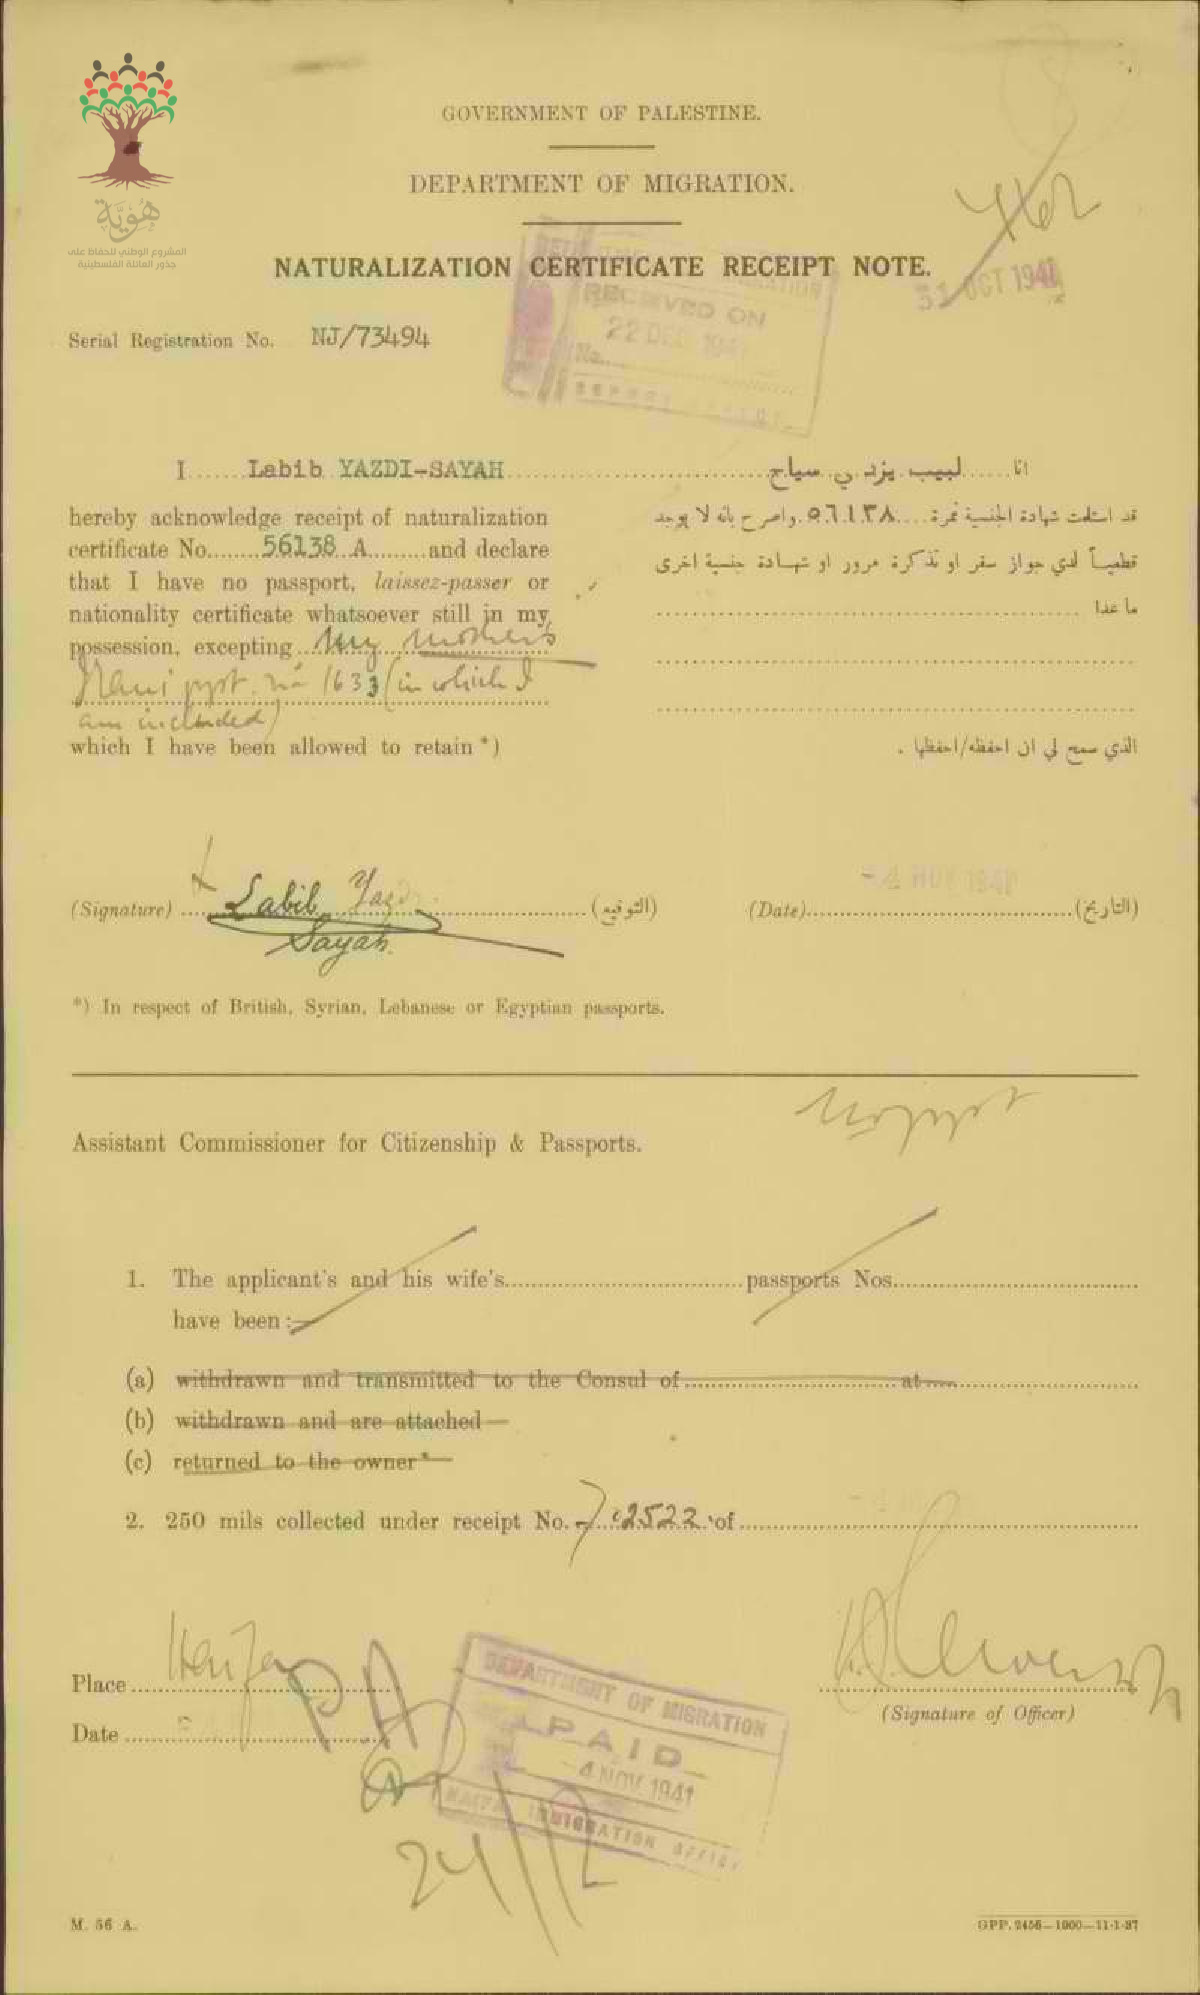 هُوِيَّة
المشروع الوطني للحفاظ على
جذور العائلة الفلسطينية
GOVERNMENT OF PALESTINE.
DEPARTMENT OF MIGRATION.
NATURALIZATION CERTIFICATE RECEIPT NOTE.
31 OCT 1941
RECEIVED ON
22 DEC 1941
No.
Serial Registration No. NJ/73494
I......Labib YAZDI-SAYAH
انا......لبيب يزدي سياح
hereby acknowledge receipt of naturalization
certificate No.......56138 A........and declare
that I have no passport, laissez-passer or
nationality certificate whatsoever still in my
possession, excepting my mothers
Irani ppt. no 1633 (in which I
am included)
which I have been allowed to retain *)
قد استلمت شهادة الجنسية نمرة....٥٦١٣٨.واصرح بانه لا يوجد
قطعياً لدي جواز سفر او تذكرة مرور او شهادة جنسية اخرى
ما عدا
الذي سمح لي ان احفظه/احفظها .
(Signature) Labib Yazdi (التوقيع)
Sayah.
(Date) -4 NOV 1941 (التاريخ)
*) In respect of British, Syrian, Lebanese or Egyptian passports.
Assistant Commissioner for Citizenship & Passports.
1. The applicant's and his wife's..........passports Nos..........
have been :—
(a) withdrawn and transmitted to the Consul of..........at..........
(b) withdrawn and are attached
(c) returned to the owner*
2. 250 mils collected under receipt No. 2522 of
Place Haifa
(Signature of Officer)
Date
DEPARTMENT OF MIGRATION
PAID
-4 NOV 1941
HAIFA IMMIGRATION OFFICE
24/12
M. 56 A.
GPP. 2456—1000—11-1-37